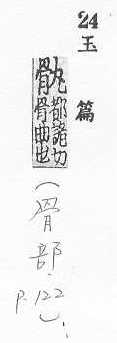 24
玉篇
骫
切
骨曲也
(骨部.P.122)